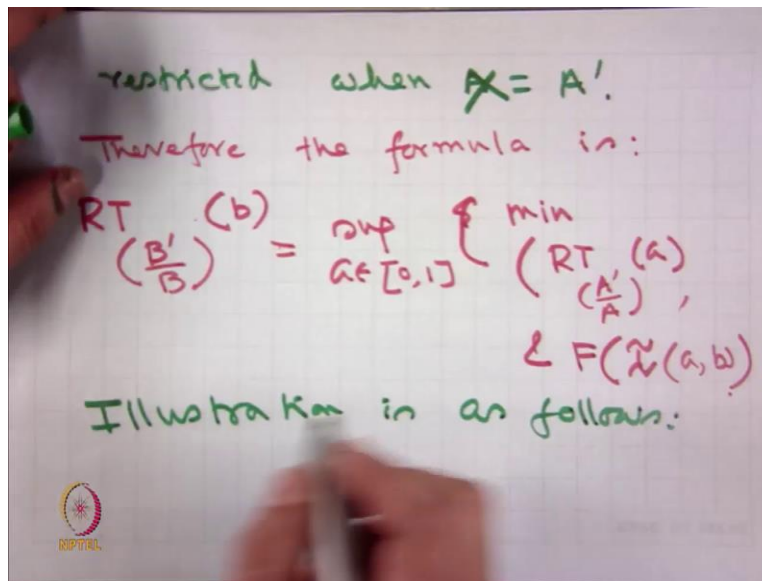 restricted when X = A'.
Therefore the formula is:
RT (B'/B) (b) = sup a∈[0,1] { min ( RT (A'/A) (a) ,
& F(≈(a,b))
Illustration is as follows:
NPTEL